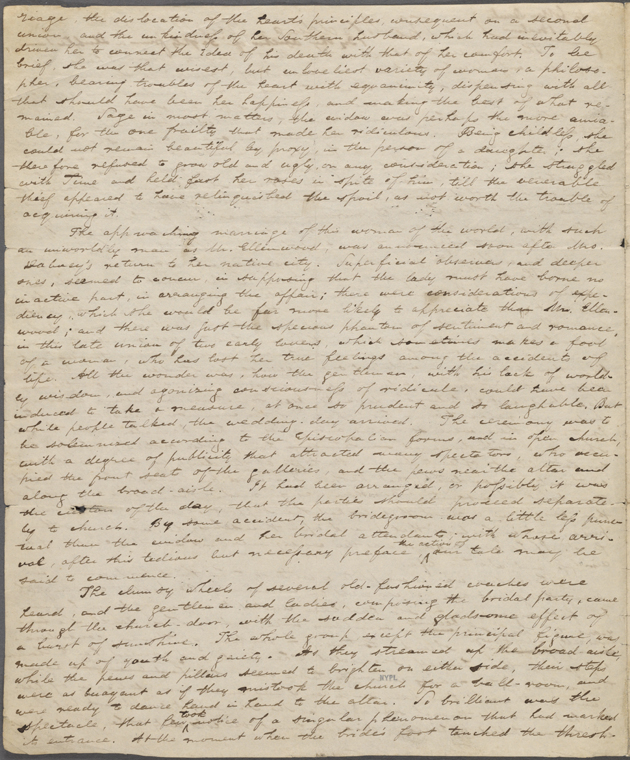 riage, the dislocation of the heart's principles, consequent on a second
union, and the unkindness of her Southern husband, which had inevitably
driven her to connect the idea of his death with that of her comfort. To be
brief, she was that wisest, but unloveliest variety of woman, a philoso-
pher, bearing troubles of the heart with equanimity, dispensing with all
that should have been her happiness, and making the best of what re-
mained. Sage in most matters, the widow was perhaps the more amia-
ble, for the one frailty that made her ridiculous. Being childless, she
could not remain beautiful by proxy, in the person of a daughter; she
therefore refused to grow old and ugly, on any consideration; she struggled
with Time and held fast her roses in spite of him, till the venerable
thief appeared to have relinquished the spoil, as not worth the trouble of
acquiring it.
The approaching marriage of this woman of the world, with such
an unworldly man as Mr. Ellenwood, was announced soon after Mrs.
Dabney's return to her native city. Superficial observers, and deeper
ones, seemed to concur, in supposing that the lady must have borne no
inactive part, in arranging the affair; there were considerations of expe-
diency, which she would be far more likely to appreciate than Mr. Ellen-
wood; and there was just the specious phantom of sentiment and romance,
in this late union of two early lovers, which sometimes makes a fool
of a woman, who has lost her true feelings among the accidents of
life. All the wonder was, how the gentleman, with his lack of world-
ly wisdom, and agonizing consciousness of ridicule, could have been
induced to take a measure, at once so prudent and so laughable. But
while people talked, the wedding-day arrived. The ceremony was to
be solemnized according to the Episcopalian forms, and in open church,
with a degree of publicity that attracted many spectators, who occu-
pied the front seats of the galleries, and the pews near the altar and
along the broad-aisle. It had been arranged, or possibly it was
the custom of the day, that the parties should proceed separate-
ly to church. By some accident, the bridegroom was a little less punc-
tual than the widow and her bridal attendants; with whose arri-
val, after this tedious but necessary preface, the action of our tale may be
said to commence.
The clumsy wheels of several old-fashioned coaches were
heard, and the gentlemen and ladies, composing the bridal party, came
through the church-door, with the sudden and gladsome effect of
a burst of sunshine. The whole group, except the principal figure, was
made up of youth and gaiety. As they streamed up the broad aisle,
while the pews and pillars seemed to brighten on either side, their steps
were as buoyant as if they mistook the church for a ball-room, and
were ready to dance hand in hand to the altar. So brilliant was the
spectacle, that few took notice of a singular phenomenon that had marked
its entrance. At the moment when the bride's foot touched the thresh-
NYPL